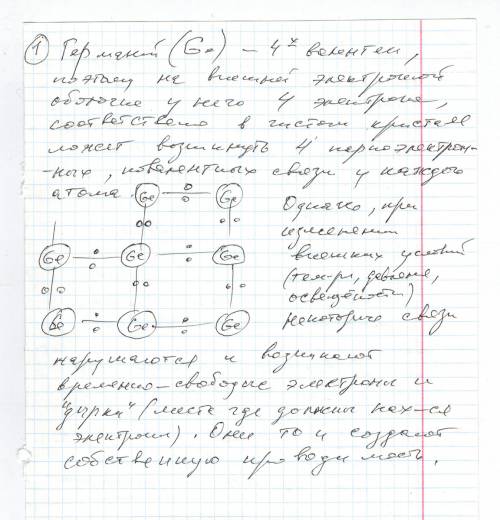 1 Германий (Ge) – 4х валентен,
поэтому на внешней электронной
оболочке у него 4 электрона,
соответственно в чистом кристалле
может возникнуть 4 парноэлектрон-
-ных, ковалентных связи у каждого
атома. Ge Ge
Однако, при
изменении
внешних условий
Ge Ge Ge
(тем-ры, давление,
освещённости)
Ge Ge Ge
некоторые связи
нарушаются и возникают
временно-свободные электроны и
"дырки" (места где должны нах-ся
электроны). Они то и создают
собственную проводимость.